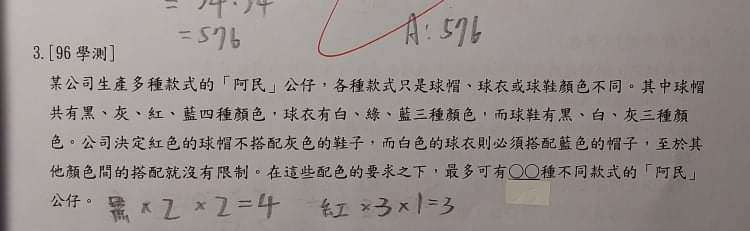 = 576
A: 576
3.[96 學測]
某公司生產多種款式的「阿民」公仔，各種款式只是球帽、球衣或球鞋顏色不同。其中球帽
共有黑、灰、紅、藍四種顏色，球衣有白、綠、藍三種顏色，而球鞋有黑、白、灰三種顏
色。公司決定紅色的球帽不搭配灰色的鞋子，而白色的球衣則必須搭配藍色的帽子，至於其
他顏色間的搭配就沒有限制。在這些配色的要求之下，最多可有○○種不同款式的「阿民」
公仔。 黑 × 2 × 2 = 4 紅 × 3 × 1 = 3